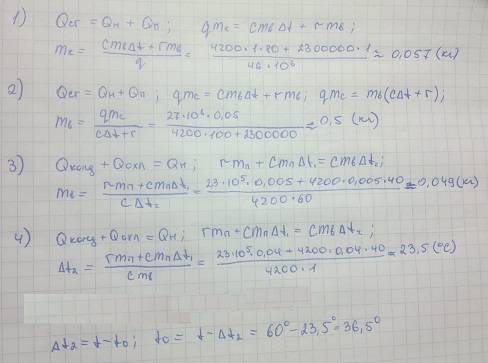 1) Qсг = Qн + Qп ; qmс = cmвΔt + rmв ;
mс = cmвΔt + rmв / q = 4200 · 1 · 80 + 2300000 · 1 / 46 · 10⁶ ≈ 0,057 (кг)
2) Qсг = Qн + Qп ; qmс = cmвΔt + rmв ; qmс = mв(cΔt + r) ;
mв = qmс / cΔt + r = 27 · 10⁶ · 0,05 / 4200 · 100 + 2300000 ≈ 0,5 (кг)
3) Qконд + Qохл = Qн ; rmп + cmпΔt₁ = cmвΔt₂ ;
mв = rmп + cmпΔt₁ / cΔt₂ = 23 · 10⁵ · 0,005 + 4200 · 0,005 · 40 / 4200 · 60 ≈ 0,049 (кг)
4) Qконд + Qохл = Qн ; rmп + cmпΔt₁ = cmвΔt₂ ;
Δt₂ = rmп + cmпΔt₁ / cmв = 23 · 10⁵ · 0,04 + 4200 · 0,04 · 40 / 4200 · 1 = 23,5 (°C)
Δt₂ = t - t₀ ; t₀ = t - Δt₂ = 60° - 23,5° = 36,5°